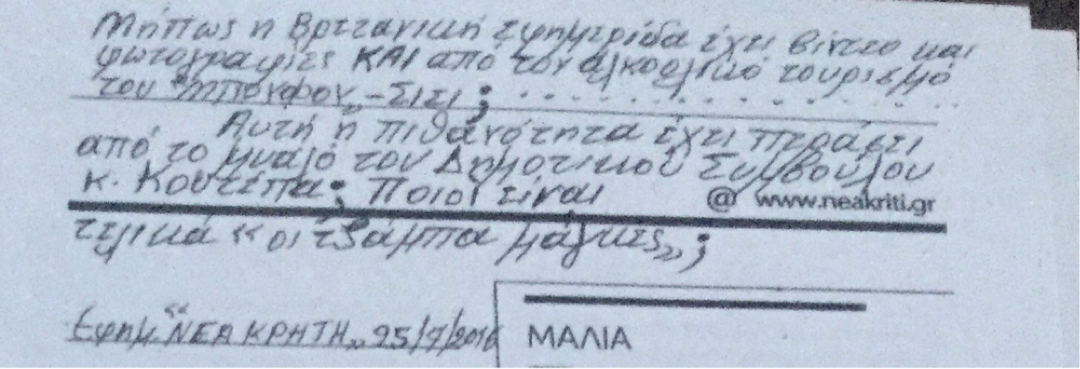 Μήπως η Βρεταννική εφημερίδα έχει βίντεο και
φωτογραφίες ΚΑΙ από τον αλκοολικό τουρισμό
του "Μπόνφορ„-Σιτι ; . . . . . . . . . . . . .
Αυτή η πιθανότητα έχει περάσει
από το μυαλό του Δημοτικού Συμβούλου
κ. Κουτεπα; Ποιοι είναι
@ www.neakriti.gr
τελικά «οι τζάμπα μάγκες»;
Εφημ. "ΝΕΑ ΚΡΗΤΗ„ 25/7/2016
ΜΑΛΙΑ